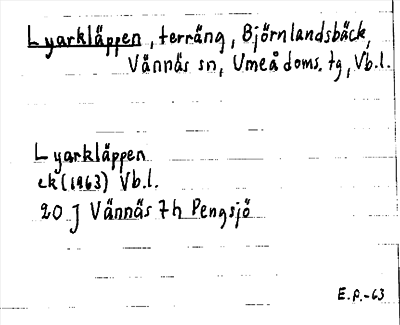 Lyarkläppen, terräng, Björnlandsbäck,
Vännäs sn, Umeå doms. tg, Vb.l.
Lyarkläppen
ek (1963) Vb.l.
20 J Vännäs 7h Pengsjö
E.P.-63